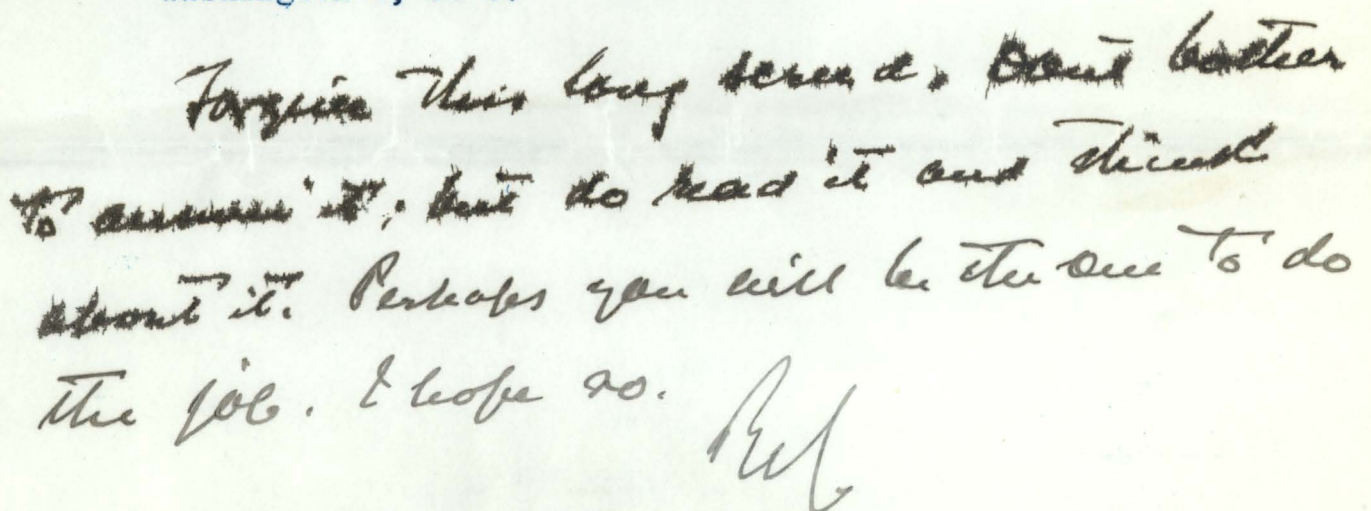 Forgive this long screed. Dont bother
to answer it, but do read it and think
about it. Perhaps you will be the one to do
the job. I hope so.